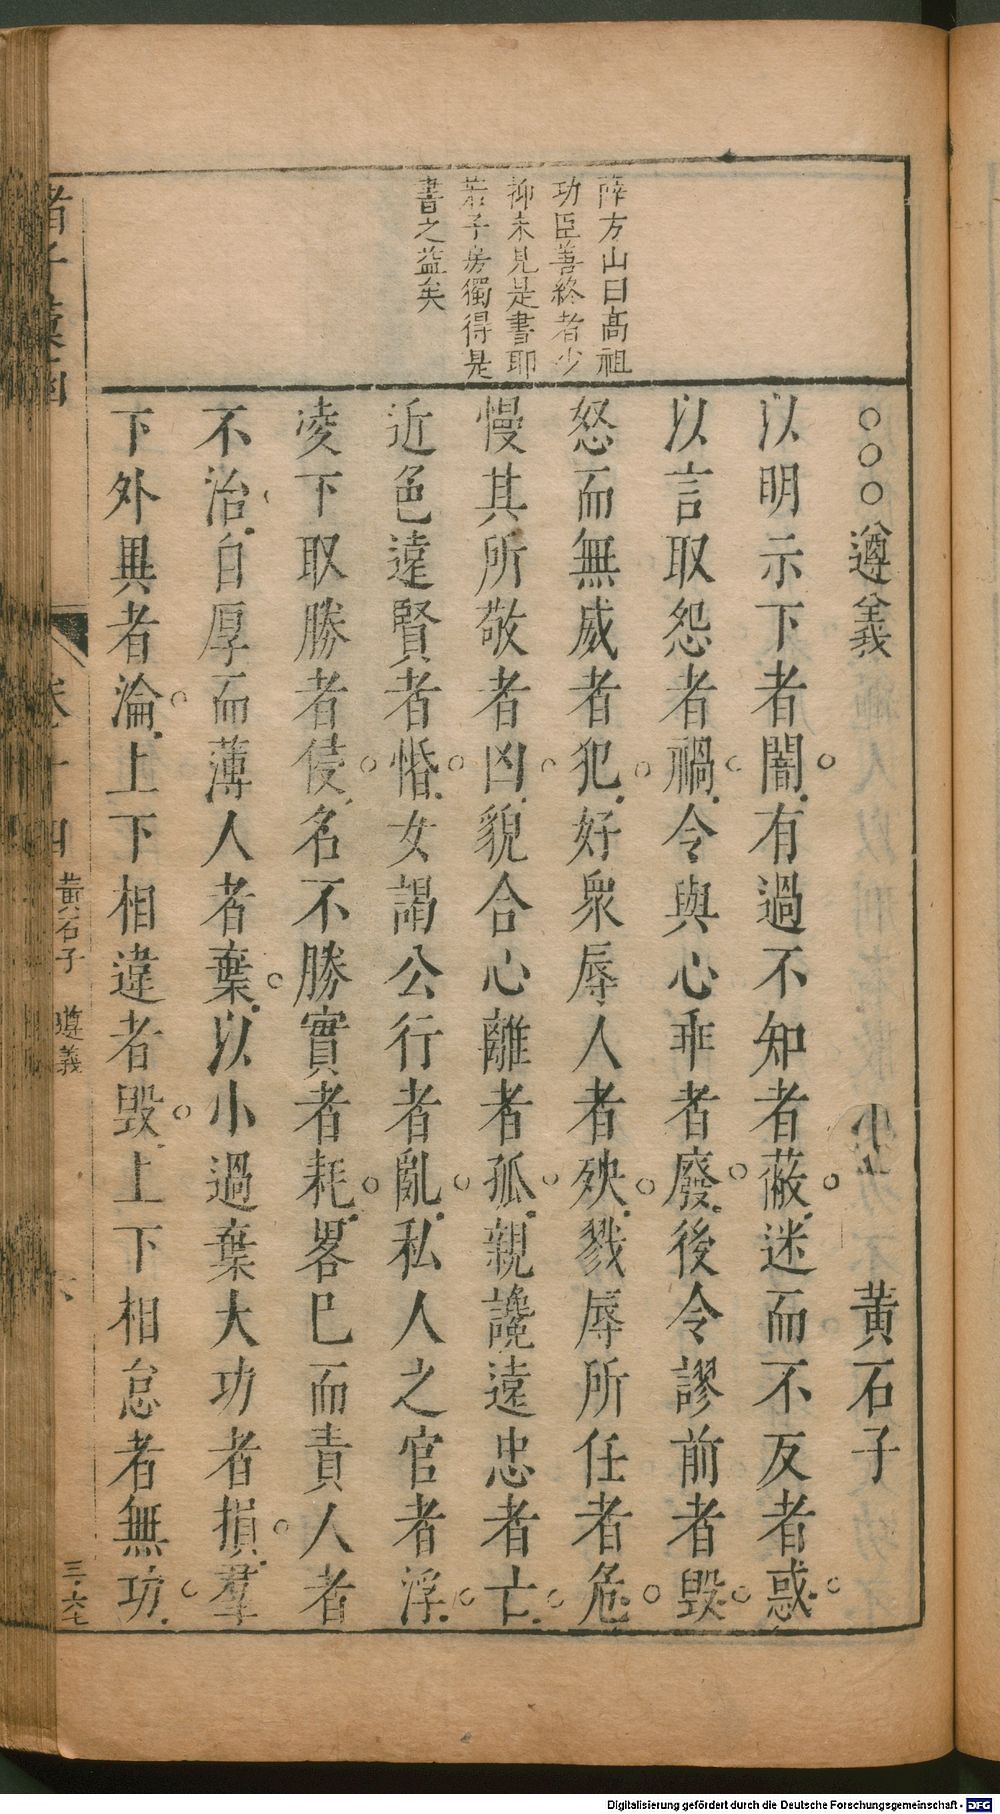 薛方山曰高祖
功臣善終者少
抑未見是書耶
若子房獨得是
書之益矣
○○○遵義 黃石子
以明示下者闇有過不知者蔽迷而不反者惑
以言取怨者禍令與心乖者廢後令謬前者毀
怒而無威者犯好衆辱人者殃戮辱所任者危
慢其所敬者凶貌合心離者孤親讒遠忠者亡
近色遠賢者惛女謁公行者亂私人之官者浮
凌下取勝者侵名不勝實者耗畧己而責人者
不治自厚而薄人者棄以小過棄大功者損羣
下外異者淪上下相違者毀上下相怠者無功
卷十四 黃石子 遵義
三六七
Digitalisierung gefördert durch die Deutsche Forschungsgemeinschaft - DFG